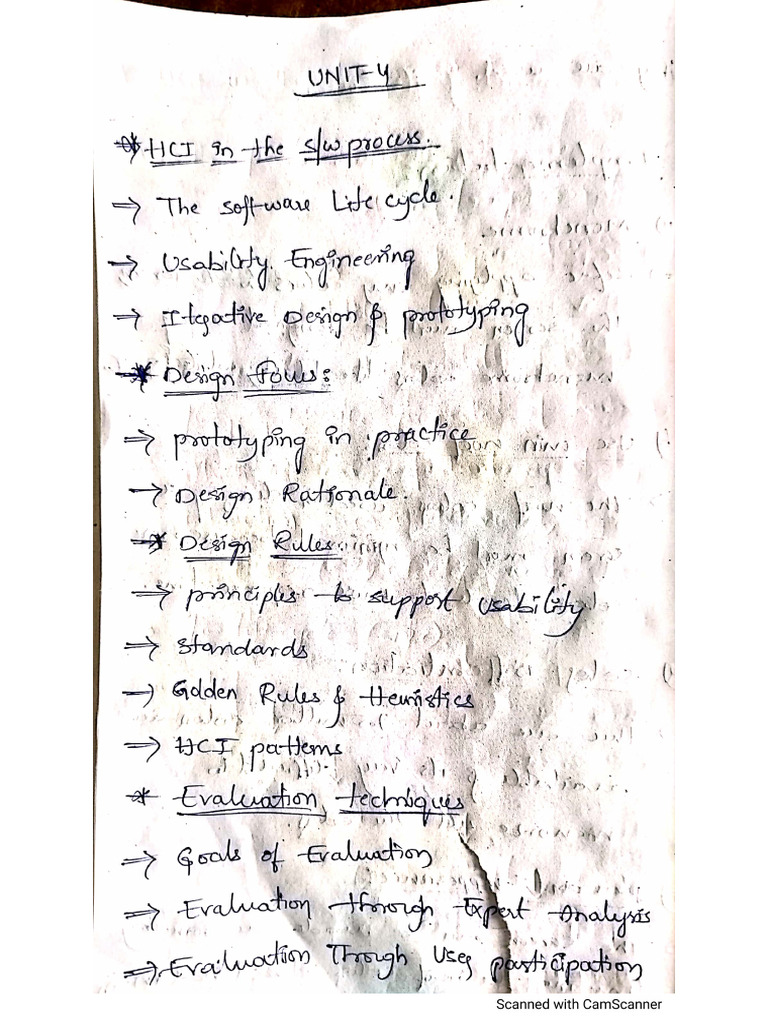 UNIT-4
* HCI in the s/w process.
→ The software Life cycle.
→ Usability Engineering
→ Iterative Design & prototyping
* Design Focus:
→ prototyping in practice
→ Design Rationale.
* Design Rules
→ principles to support usability
→ standards
→ Golden Rules & Heuristics
→ HCI patterns
* Evaluation techniques
→ Goals of Evaluation
→ Evaluation through Expert Analysis
→ Evaluation Through User participation
Scanned with CamScanner